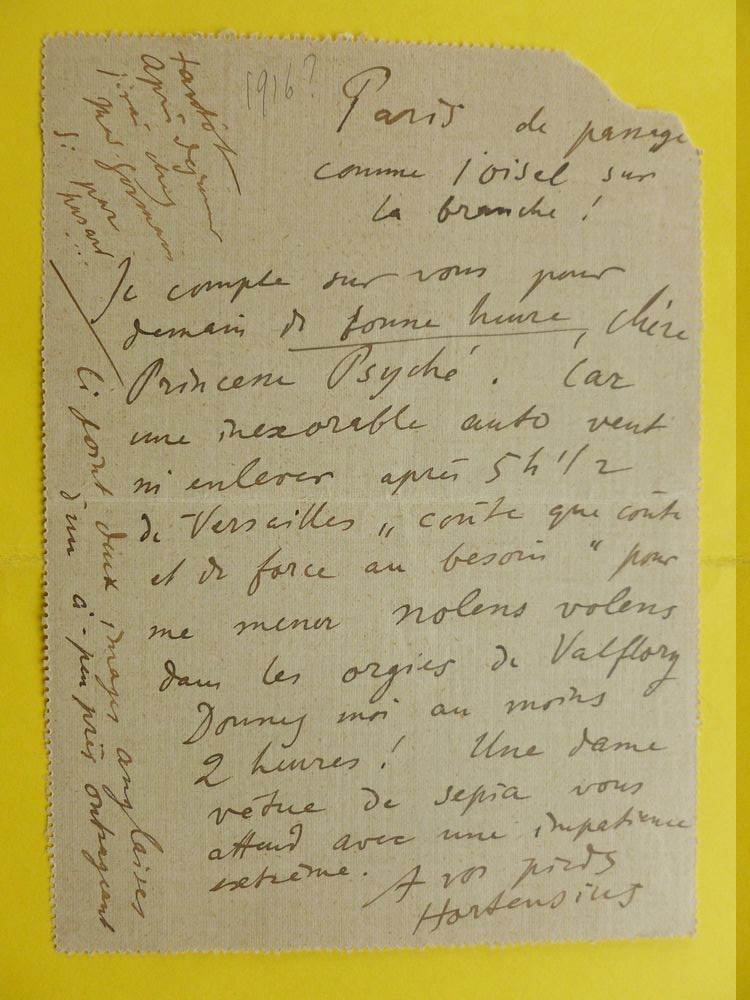 1916?
Paris de passage
comme l'oisel sur
la branche !
Je compte sur vous pour
demain de bonne heure, chère
Princesse Psyché. Car
une inexorable auto vient
m'enlever après 5h 1/2
de Versailles "coûte que coûte
et de force au besoin" pour
me mener nolens volens
dans les orgies de Valflory
Donnez moi au moins
2 heures ! Une dame
vêtue de sepia vous
attend avec une impatience
extrême. A vos pieds
Hortensius
tantôt
après déjeuner
j'irai chez
Mad
si par
hasard...
Ci joint deux images anglaises
d'un à-peu près outrageant